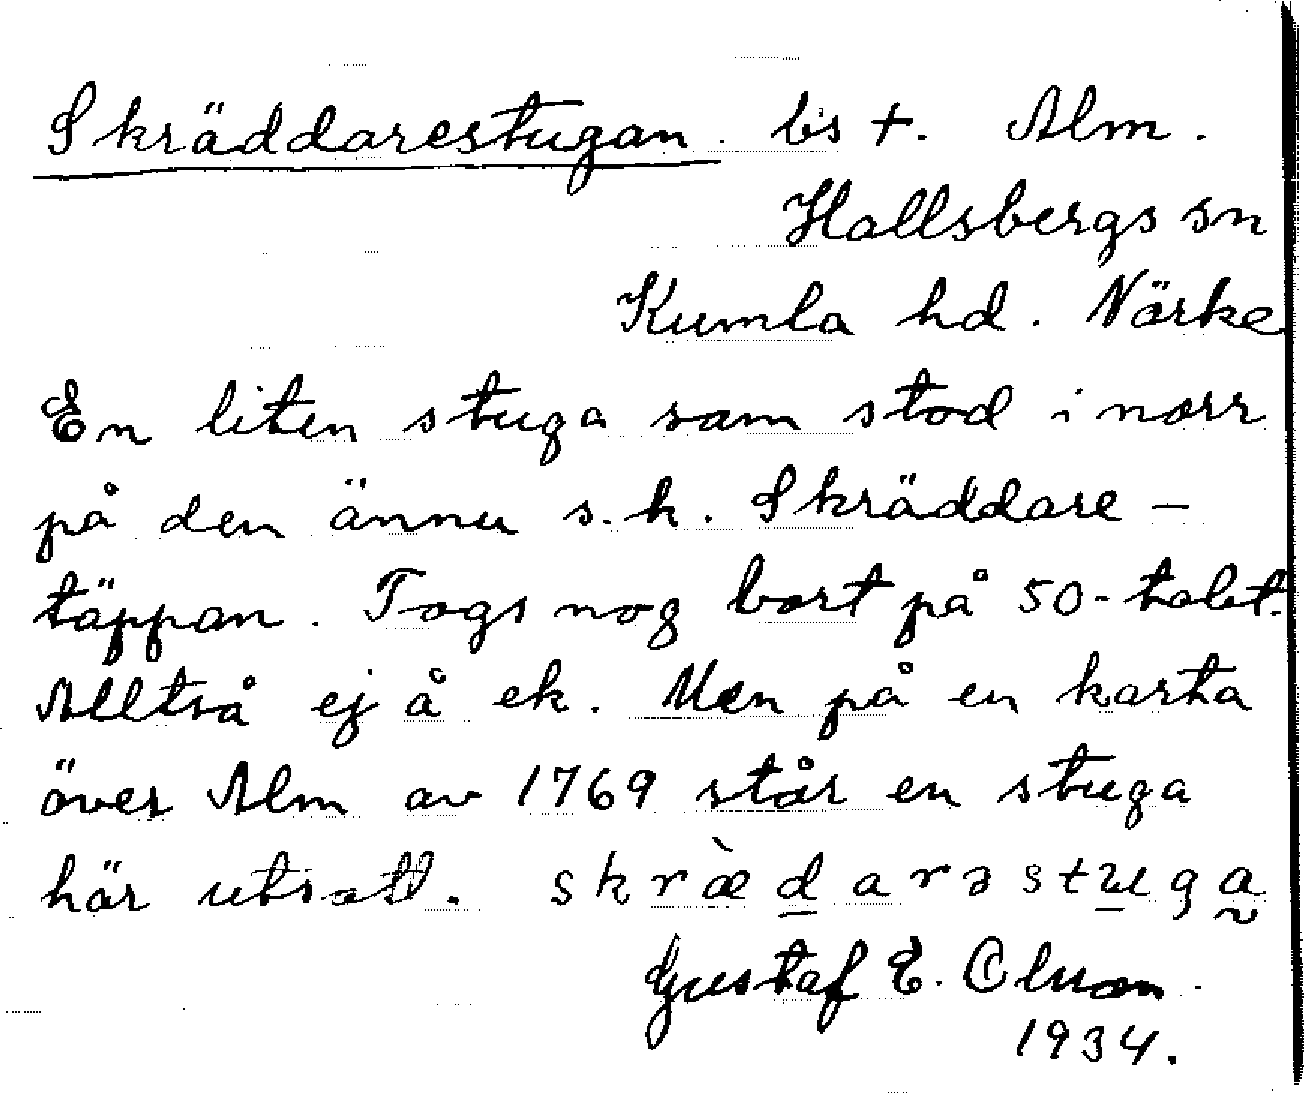 Skräddarestugan. bs +. Alm.
Hallsbergs sn
Kumla hd. Närke
En liten stuga som stod i norr
på den ännu s.k. Skräddare-
täppan. Togs nog bort på 50-talet.
Alltså ej å ek. Men på en karta
över Alm av 1769 står en stuga
här utsatt. skræ̀d̲arəstu̲ga̰
Gustaf E. Olsson.
1934.